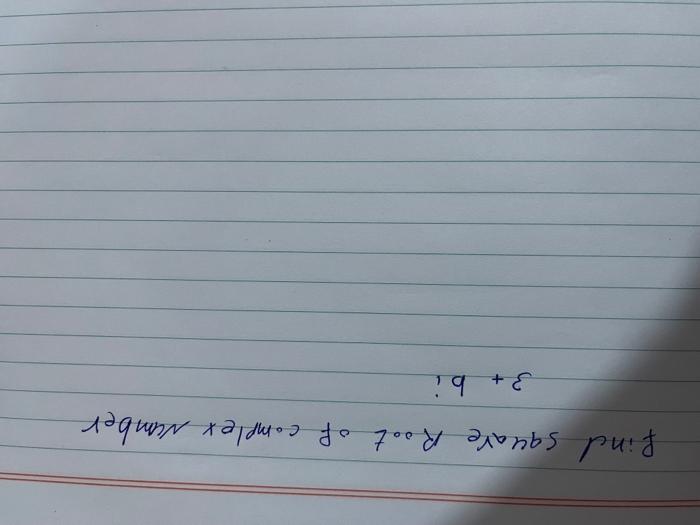 find square Root of complex Number
3 + bi